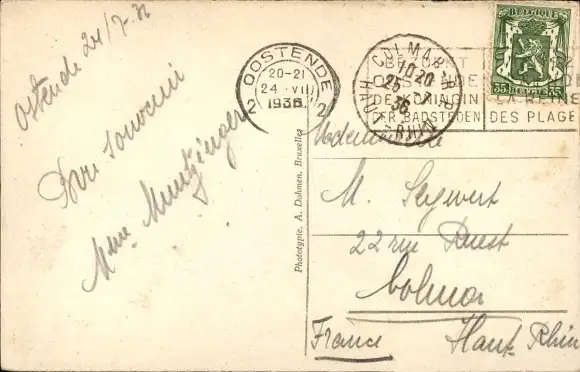 Ostende 24/7.36
Bon souvenir
Mme. Muntzinger
OOSTENDE
20-21
24 VII
1936
2 2
COLMAR R.P.
10 20
25 -7
36
HAUT-RHIN
BELGIQUE
35 BELGIE 35
DE KONINGIN
DER BADSTEDEN
LA REINE
DES PLAGES
Phototypie, A. Dohmen, Bruxelles
Mademoiselle
M. Seywert
22 rue Ruest
Colmar
France Haut-Rhin